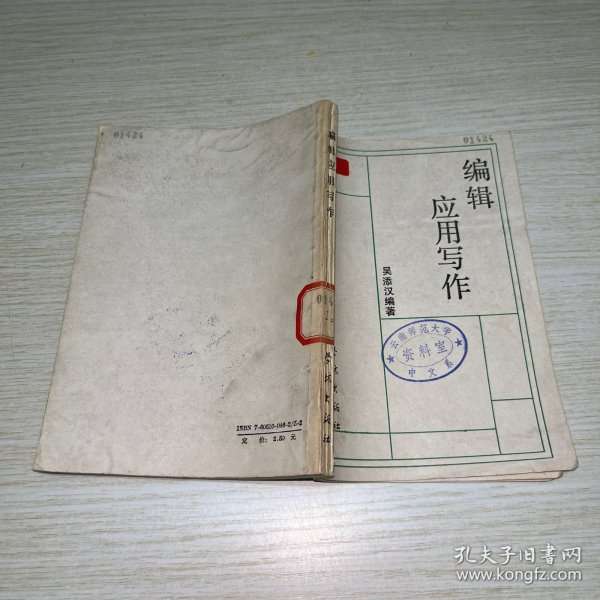 01424
编辑应用写作
014
学林出版社
ISBN 7-80510-046-2/Z·2
定 价：2.50 元
01424
编辑
应用写作
吴添汉编著
云南师范大学
资料室
中文系
孔夫子旧书网
www.kongfz.com